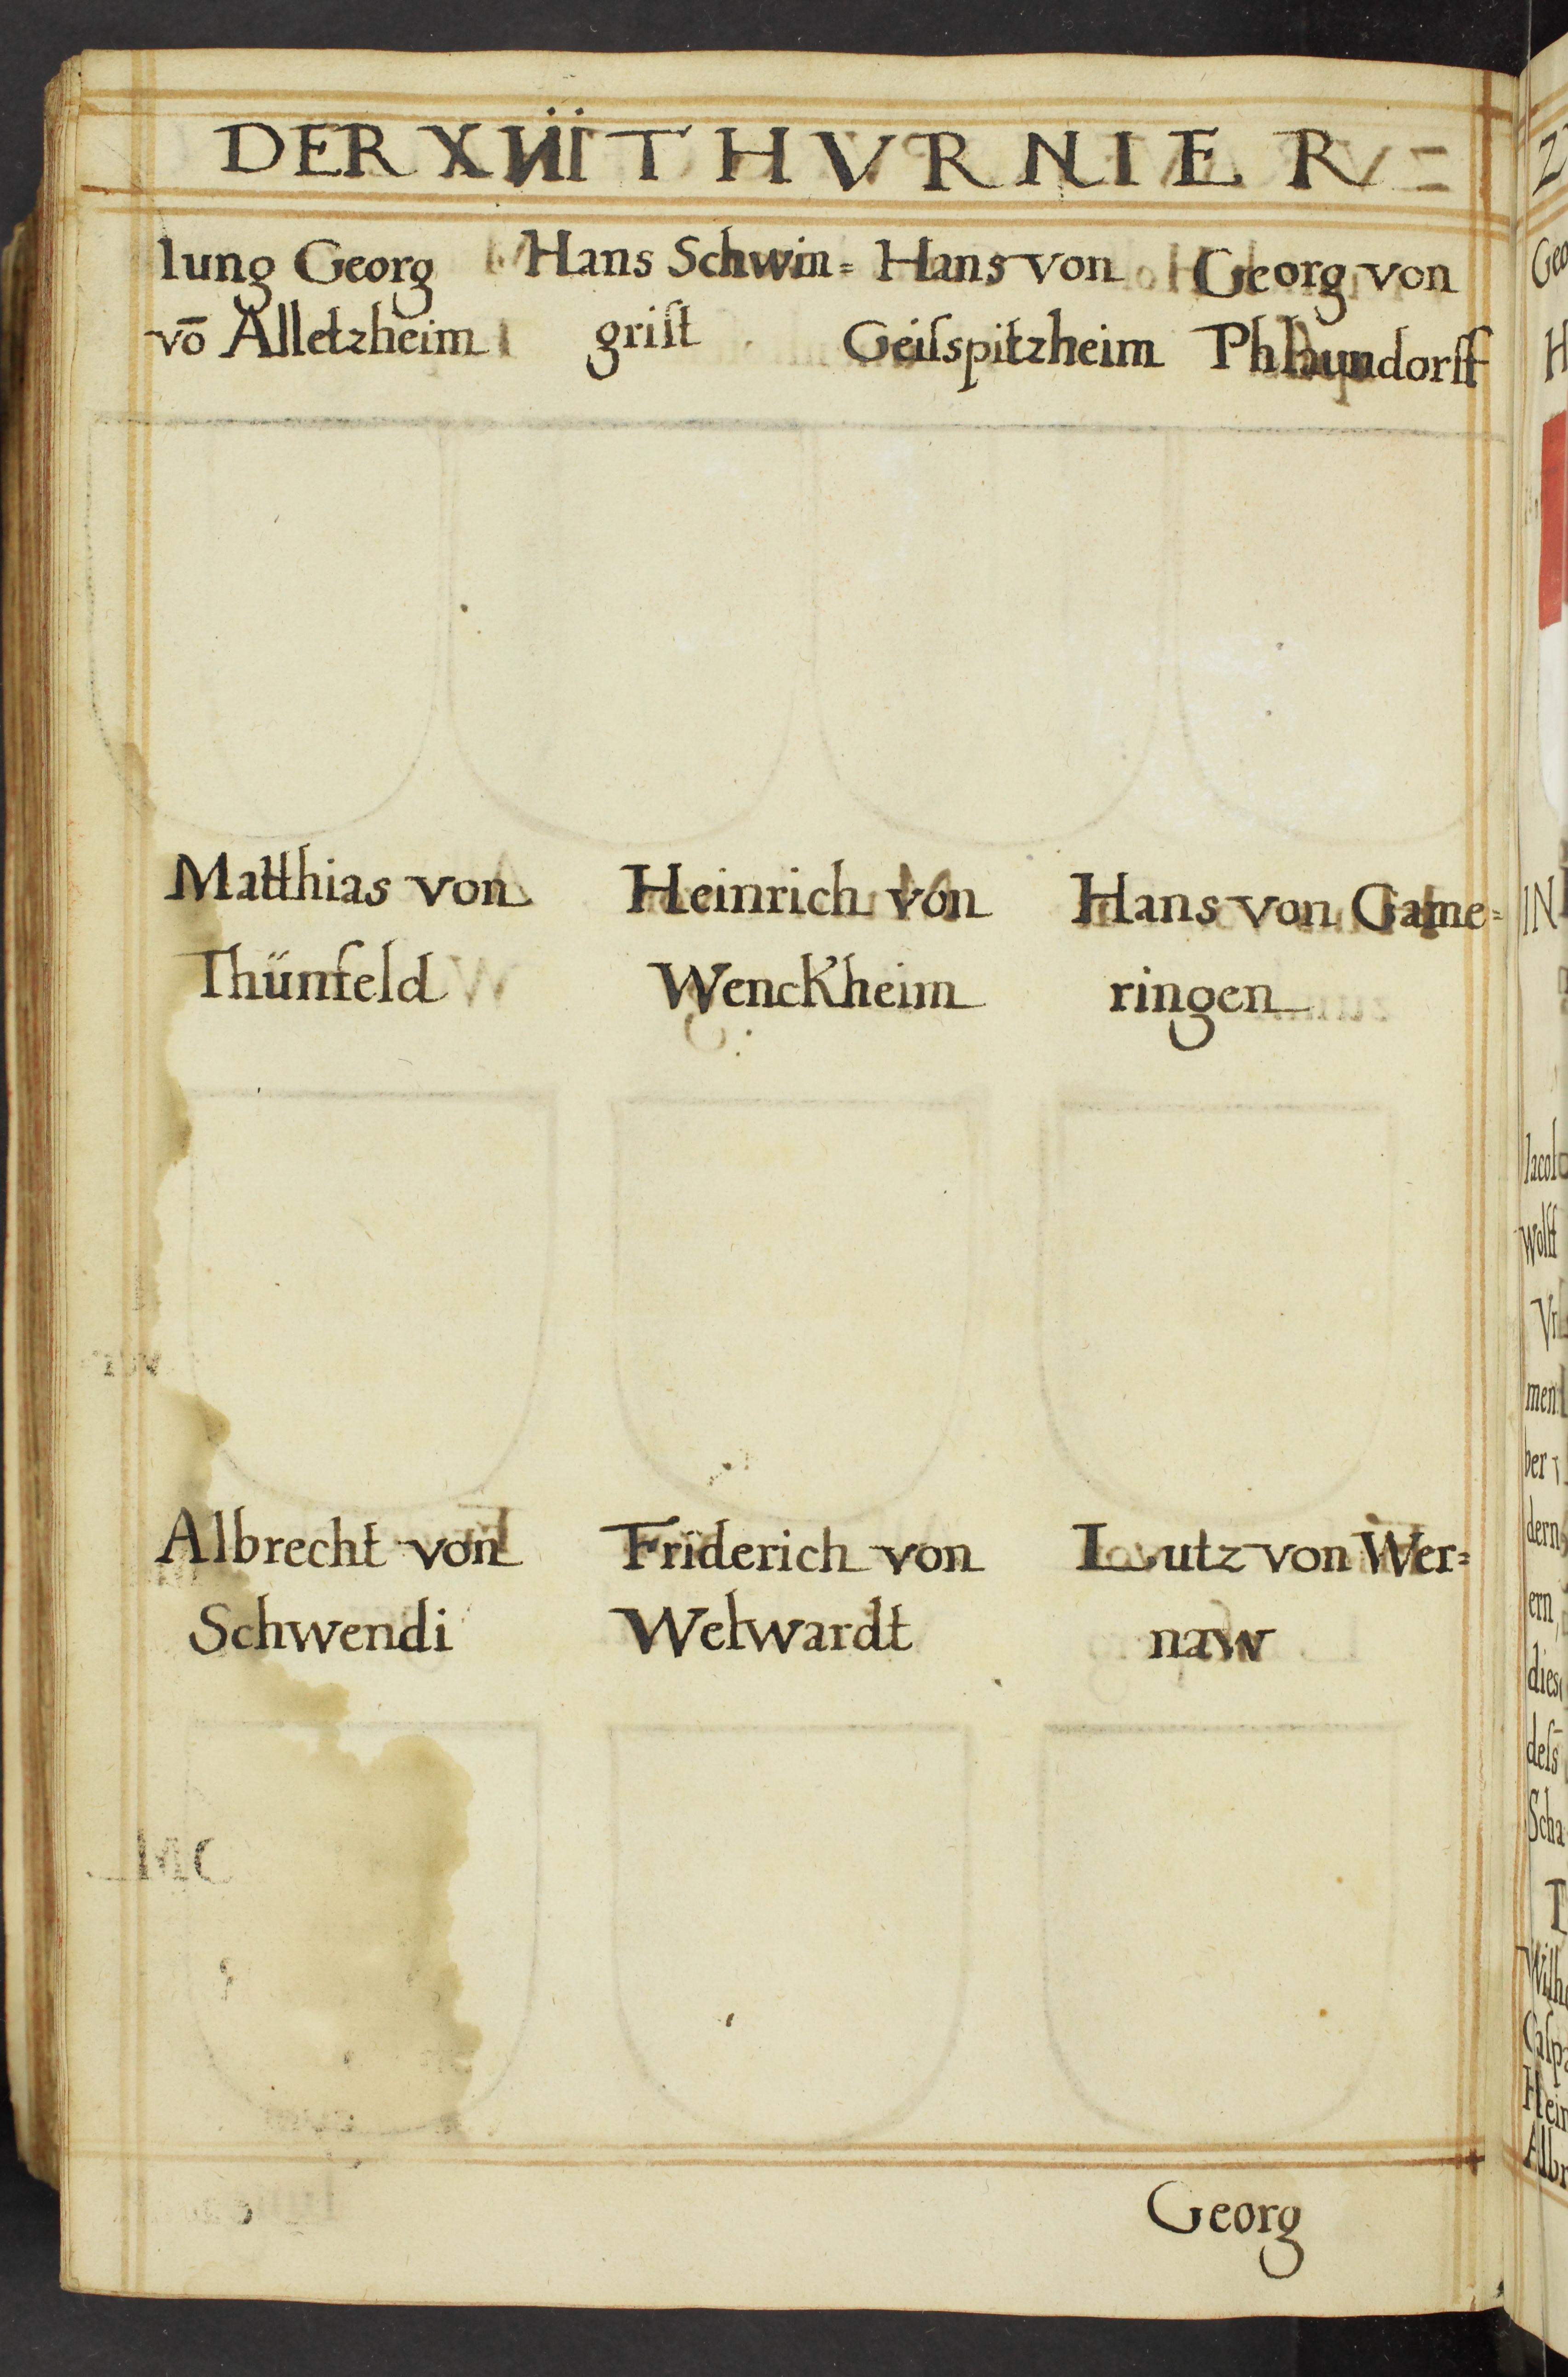 DER XVIII THVRNIER
Iung Georg
võ Alletzheim
Hans Schwin=
griſt
Hans von
Geiſspitzheim
Georg von
Matthias von
Thünfeld
Heinrich von
Wenckheim
Hans von Game=
ringen
Albrecht von
Schwendi
Friderich von
Welwardt
Lutz von Wer=
naw
Georg